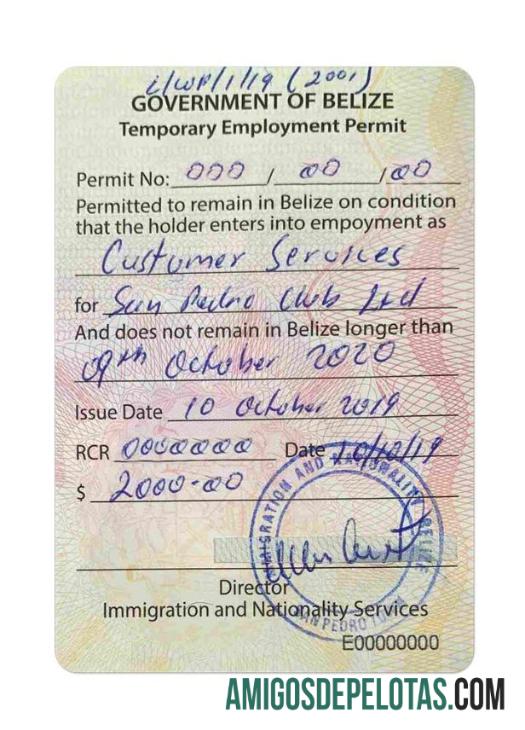 i/WP/1/19 (2001)
GOVERNMENT OF BELIZE
Temporary Employment Permit
Permit No: 000 / 00 / 00
Permitted to remain in Belize on condition
that the holder enters into empoyment as
Customer Services
for San Pedro Club Ltd
And does not remain in Belize longer than
09th October 2020
Issue Date 10 October 2019
RCR 0000000 Date 10/10/19
$ 2000-00
IMMIGRATION AND NATIONALITY BELIZE
SAN PEDRO TOWN
Director
Immigration and Nationality Services
E00000000
AMIGOSDEPELOTAS.COM